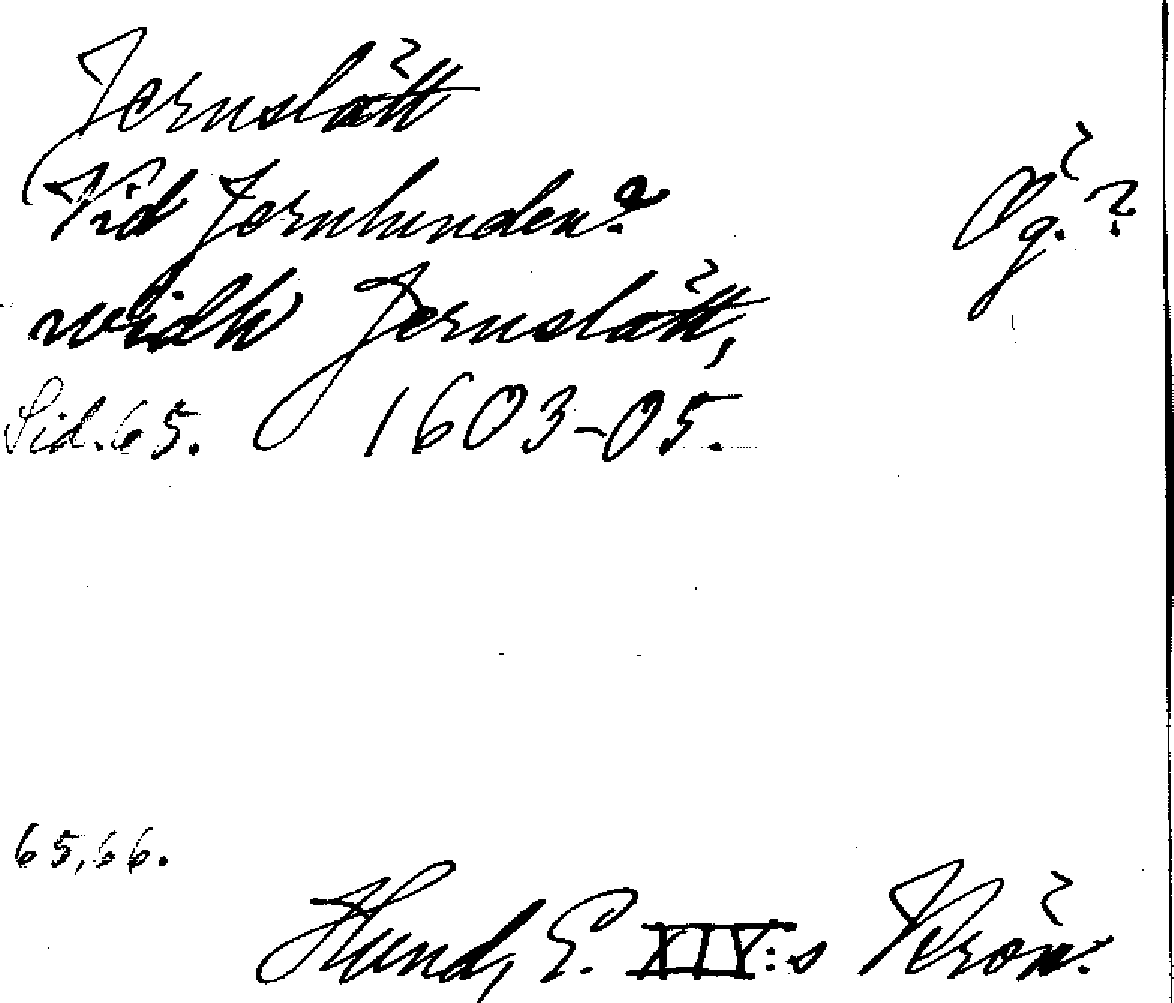 Jernslätt
(Vid Jernlunden?
widh Jernslätt,
Sid. 65. 1603-05.
Ög.?
65,66.
Hund, E. XIV:s Krön.